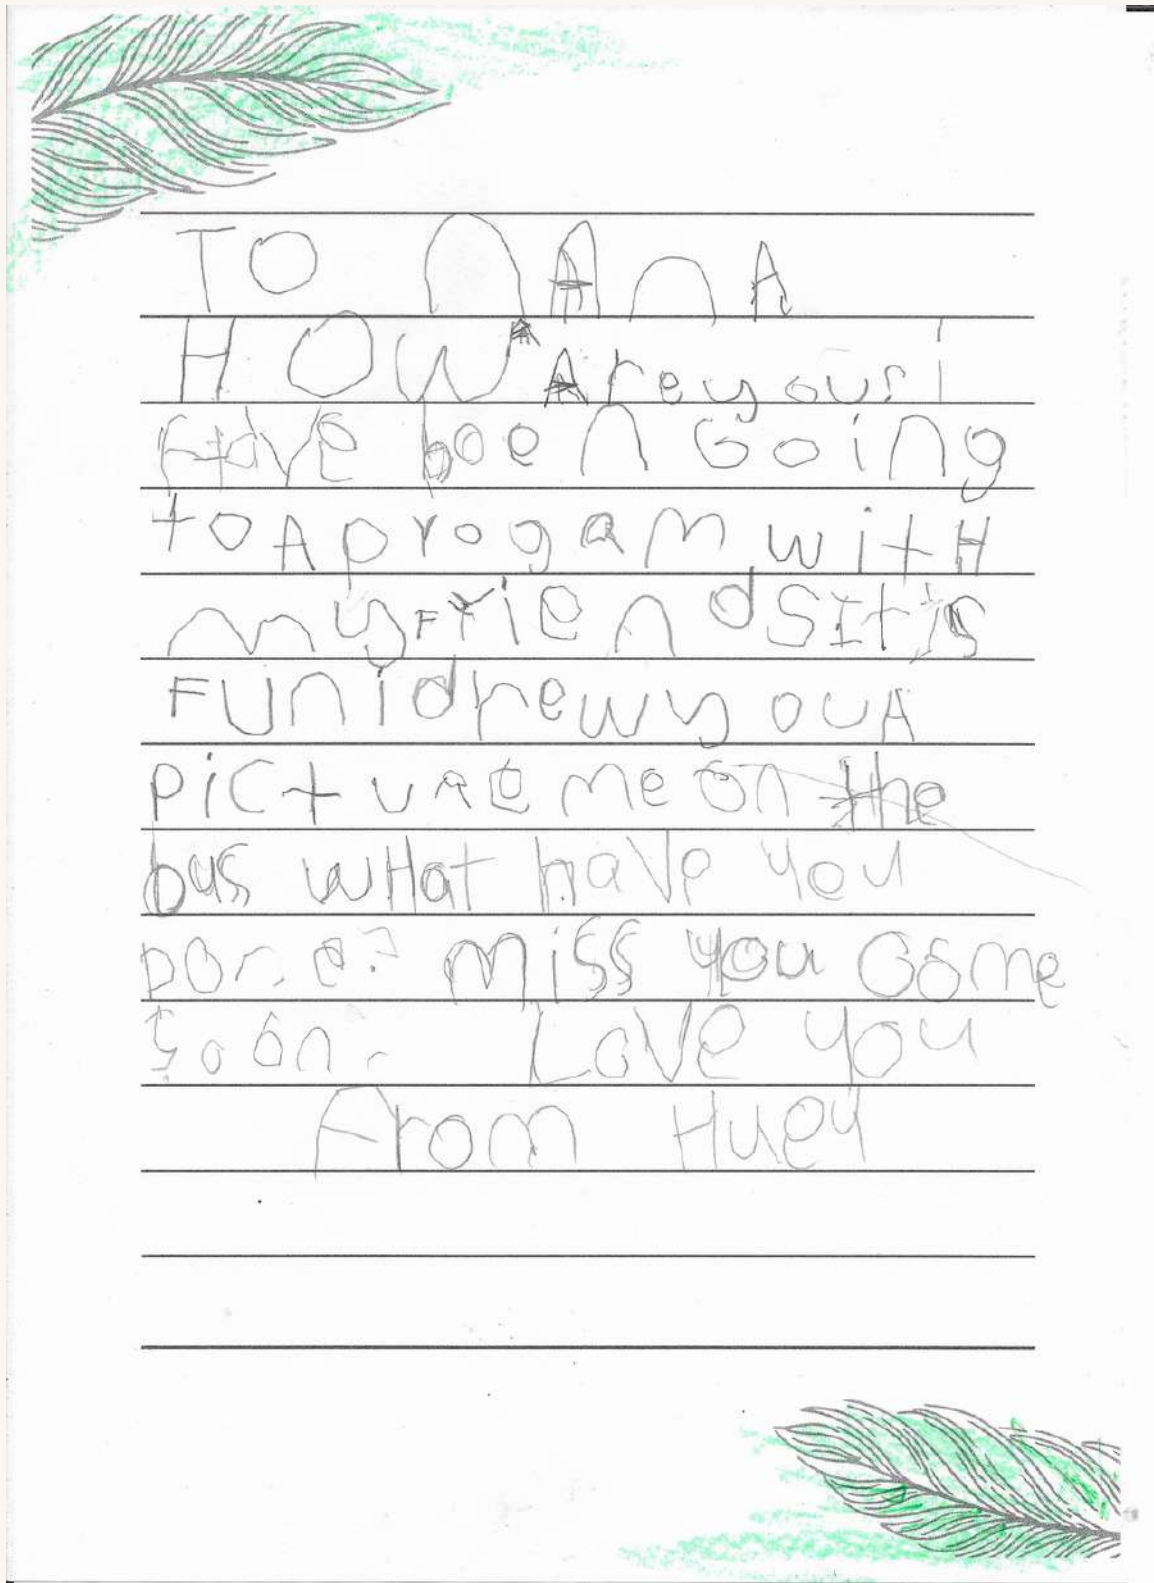 TO nAnA
HOW Areyous! I
Have been Going
to A progam witH
myFriendsItis
FUnidrewyouA
picture me on the
bus wHat have you
Done? miss you Come
Soon. Love you
From Huey